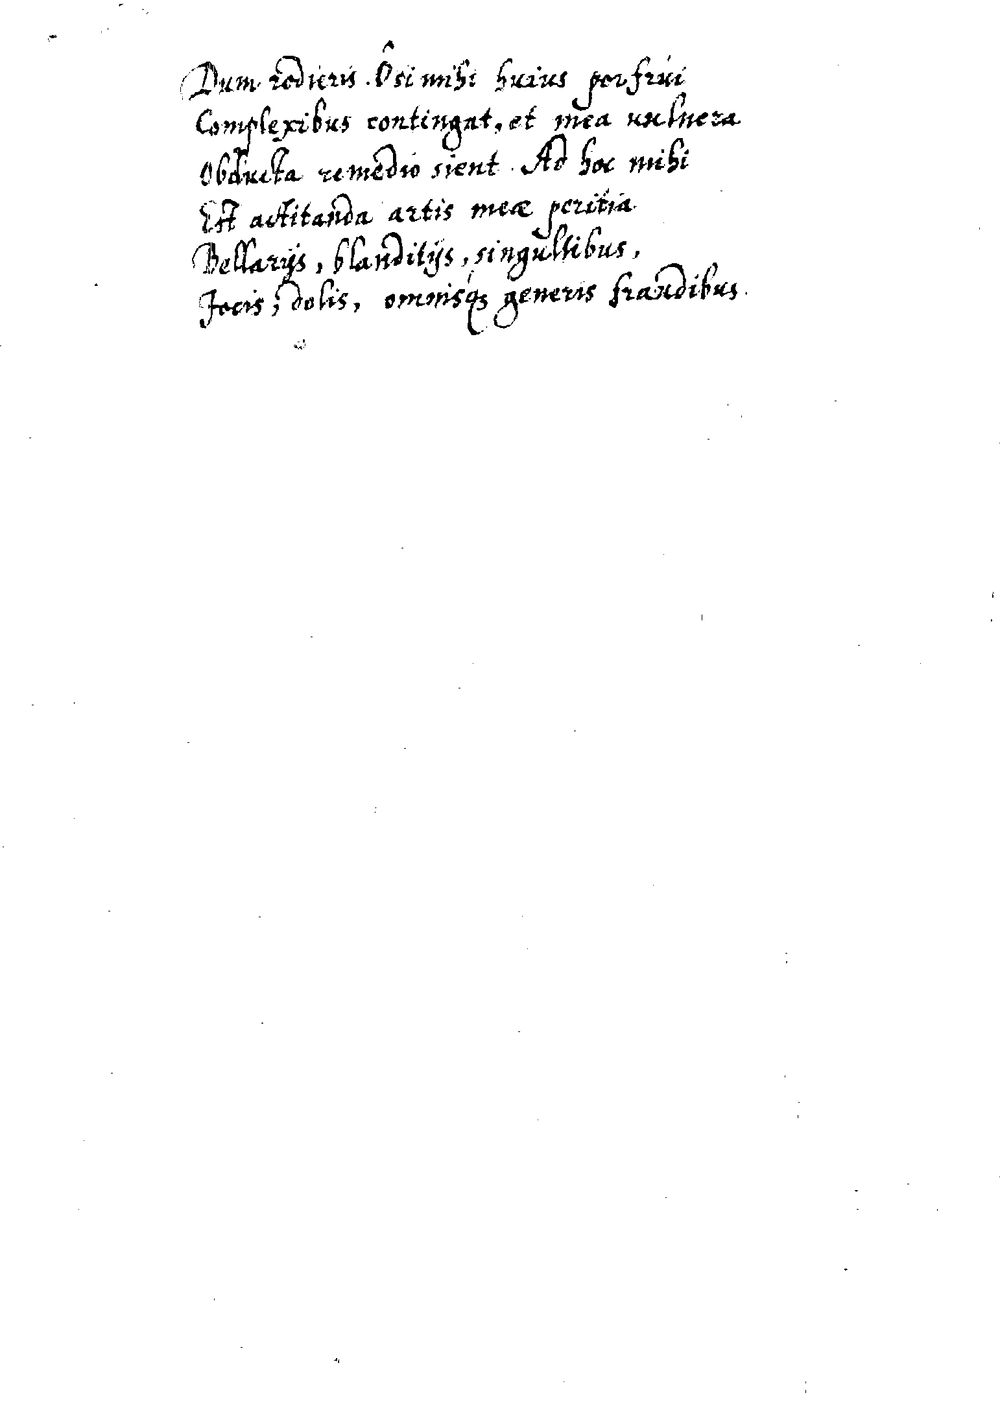 Dum redieris. Ô si mihi huius perfrui
Complexibus contingat, et mea uulnera
Obducta remedio sient. Ad hoc mihi
Est actitanda artis meæ peritia
Bellarijs, blanditijs, singultibus,
Jocis, dolis, omnisq; generis fraudibus.